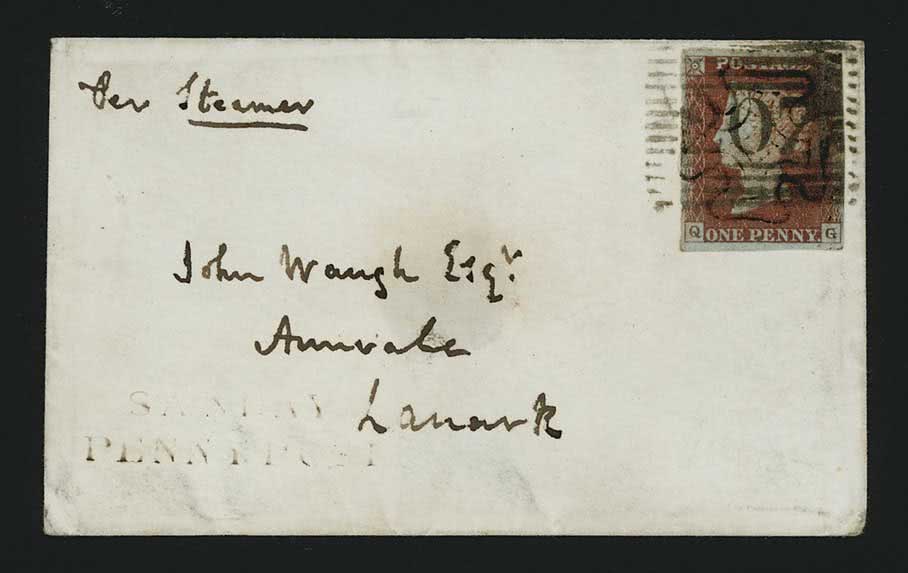 Per Steamer
POSTAGE
ONE PENNY
Q G
John Waugh Esqr.
Annvale
Lanark
PENNY POST